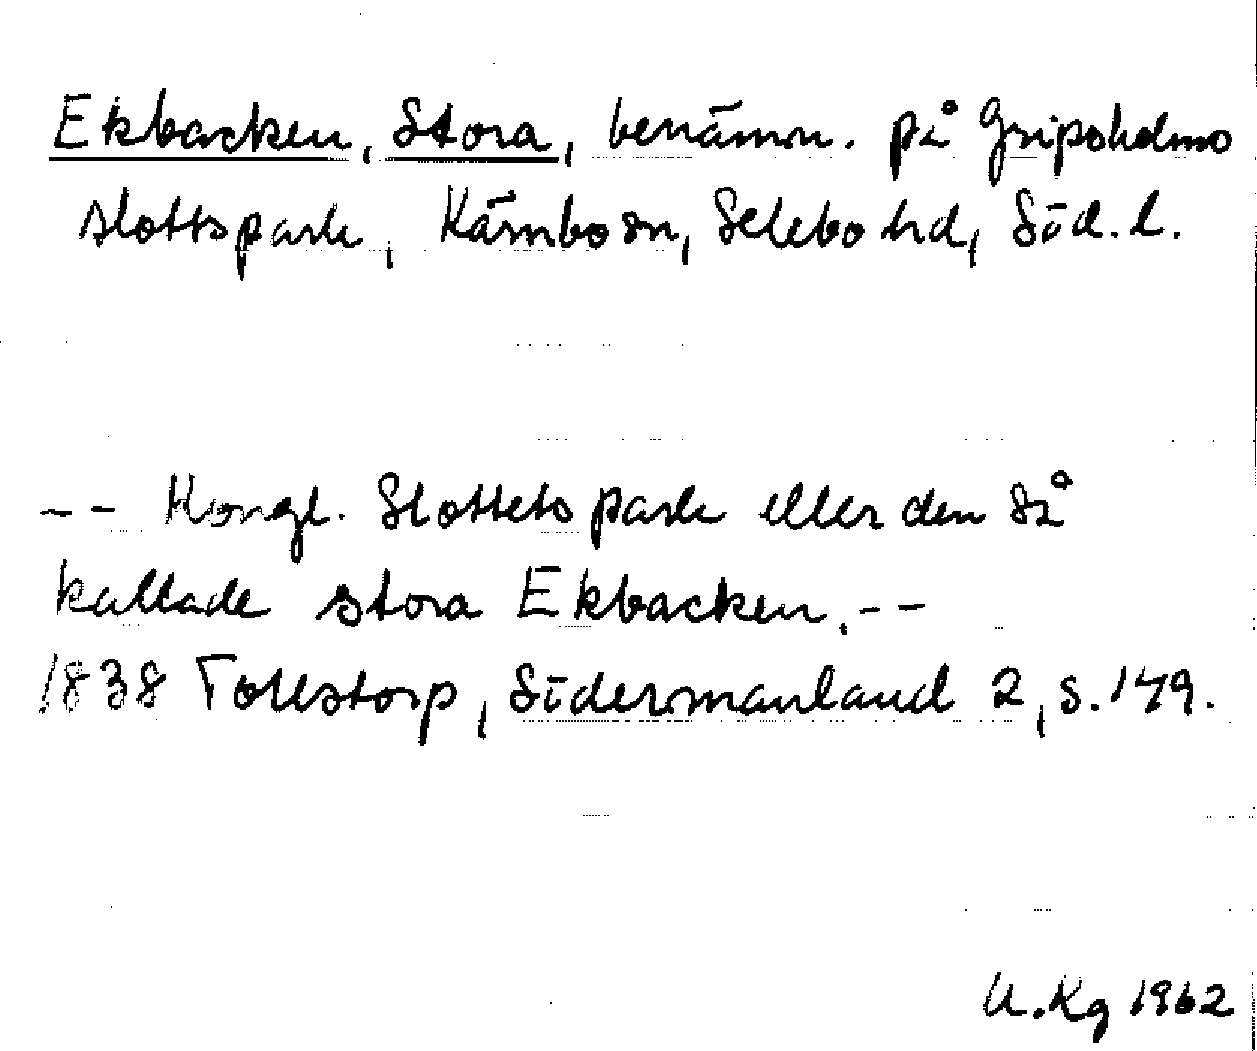 Ekbacken, Stora, benämn. på Gripsholms
slottspark, Kärnbo sn, Selebo hd, Söd. l.
-- Kongl. Slottets park eller den så
kallade stora Ekbacken. --
1838 Tollstorp, Södermanland 2, s. 149.
U. Kg 1962